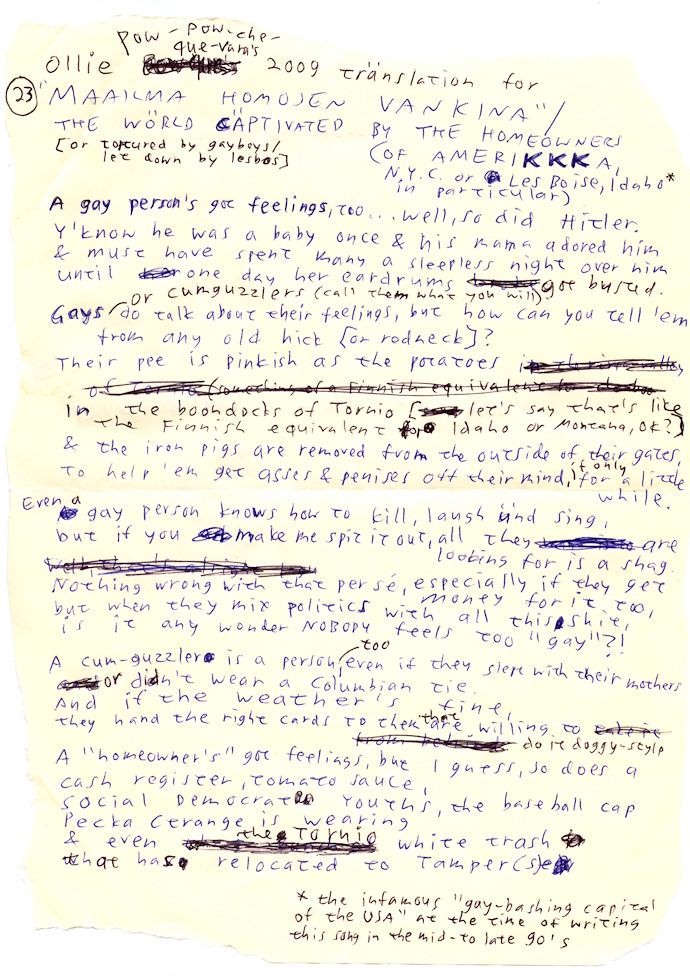 pow-pow-che-
que-vara's
Ollie 2009 translation for
23 "MAAILMA HOMOJEN VANKINA"/
THE WÖRLD CÄPTIVATED BY THE HOMEOWNERS
[or tortured by gayboys/
let down by lesbos]
(OF AMERIKKKA,
N.Y.C. or Les Boise, Idaho*
in particular)
A gay person's got feelings, too... well, so did Hitler.
Y'know he was a baby once & his mama adored him
& must have spent many a sleepless night over him
until one day her eardrums got busted.
or cumguzzlers (call them what you will)
Gays/ do talk about their feelings, but how can you tell 'em
from any old hick [or redneck]?
Their pee is pinkish as the potatoes
in the boondocks of Tornio [let's say that's like
the Finnish equivalent to Idaho or Montana, OK?]
& the iron pigs are removed from the outside of their gates,
to help 'em get asses & penises off their mind, if only for a little
while.
Even a gay person knows how to kill, laugh and sing,
but if you make me spit it out, all they are
looking for is a shag.
Nothing wrong with that per sé, especially if they get
money for it too,
but when they mix politics with all this shit,
is it any wonder NOBODY feels too "gay"?!
A cum-guzzler is a person, too even if they slept with their mothers
or didn't wear a Columbian tie.
And if the weather's fine,
they hand the right cards to them that are willing to
do it doggy-style
A "homeowner's" got feelings, but I guess, so does a
cash register, tomato sauce,
social Democrat Youths, the baseball cap
Pecka Cerange is wearing
& even the Tornio white trash
that has relocated to Tamper(s)e
* the infamous "gay-bashing capital
of the USA" at the time of writing
this song in the mid- to late 90's